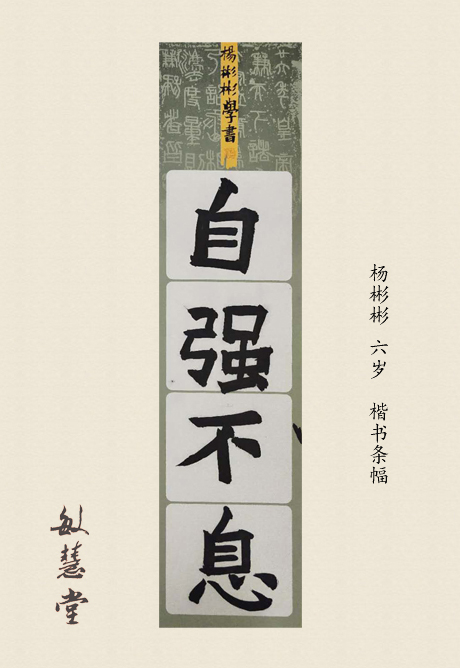 楊彬彬學書
自强不息
杨彬彬 六岁 楷书条幅
敏慧堂